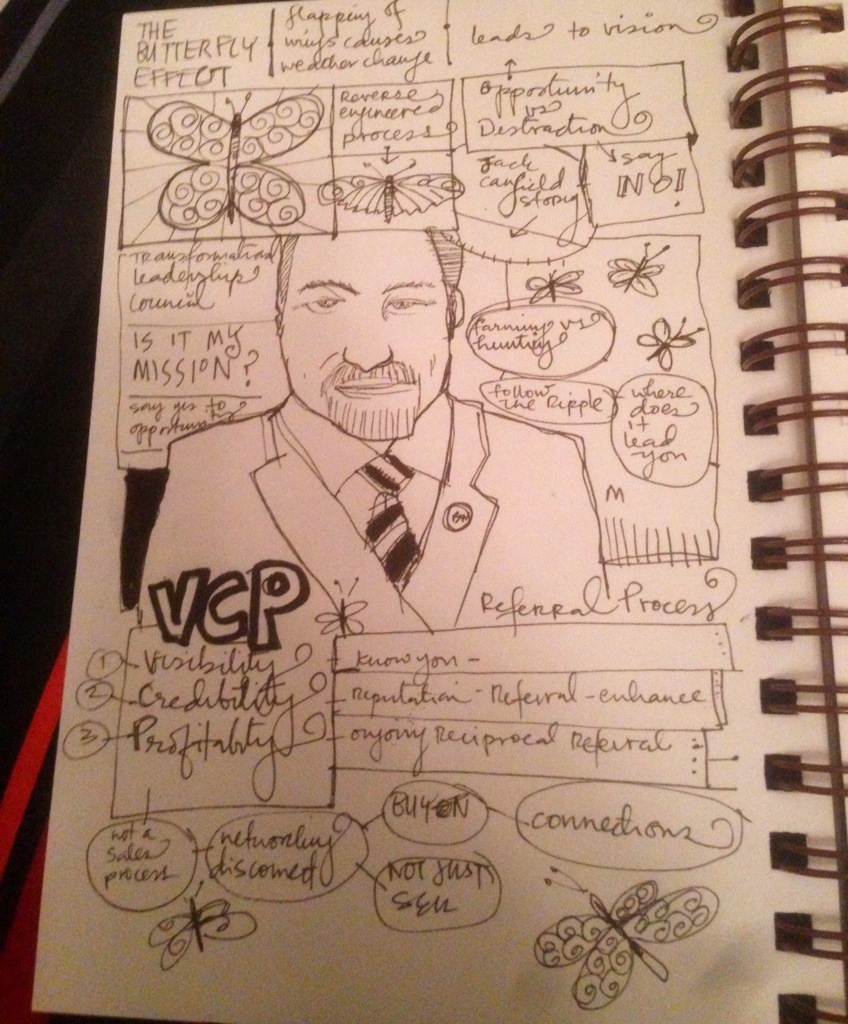 THE
BUTTERFLY
EFFECT
flapping of
wings causes
weather change
leads to vision
Reverse
engineered
process
opportunity
vs
Destraction
Jack
canfield
story
say
NO!
Transformational
Leadership
Council
IS IT MY
MISSION?
say yes to
opportunity
farming vs
hunting
follow
the Ripple
where
does
it
lead
you
M
VCP
Referral Process
1 Visibility
know you -
2 Credibility
reputation - Referral - enhance
3 Profitably
ongoing Reciprocal Referral
not a
sales
process
networking
disconnect
BUY ON
NOT JUST
SELL
connections